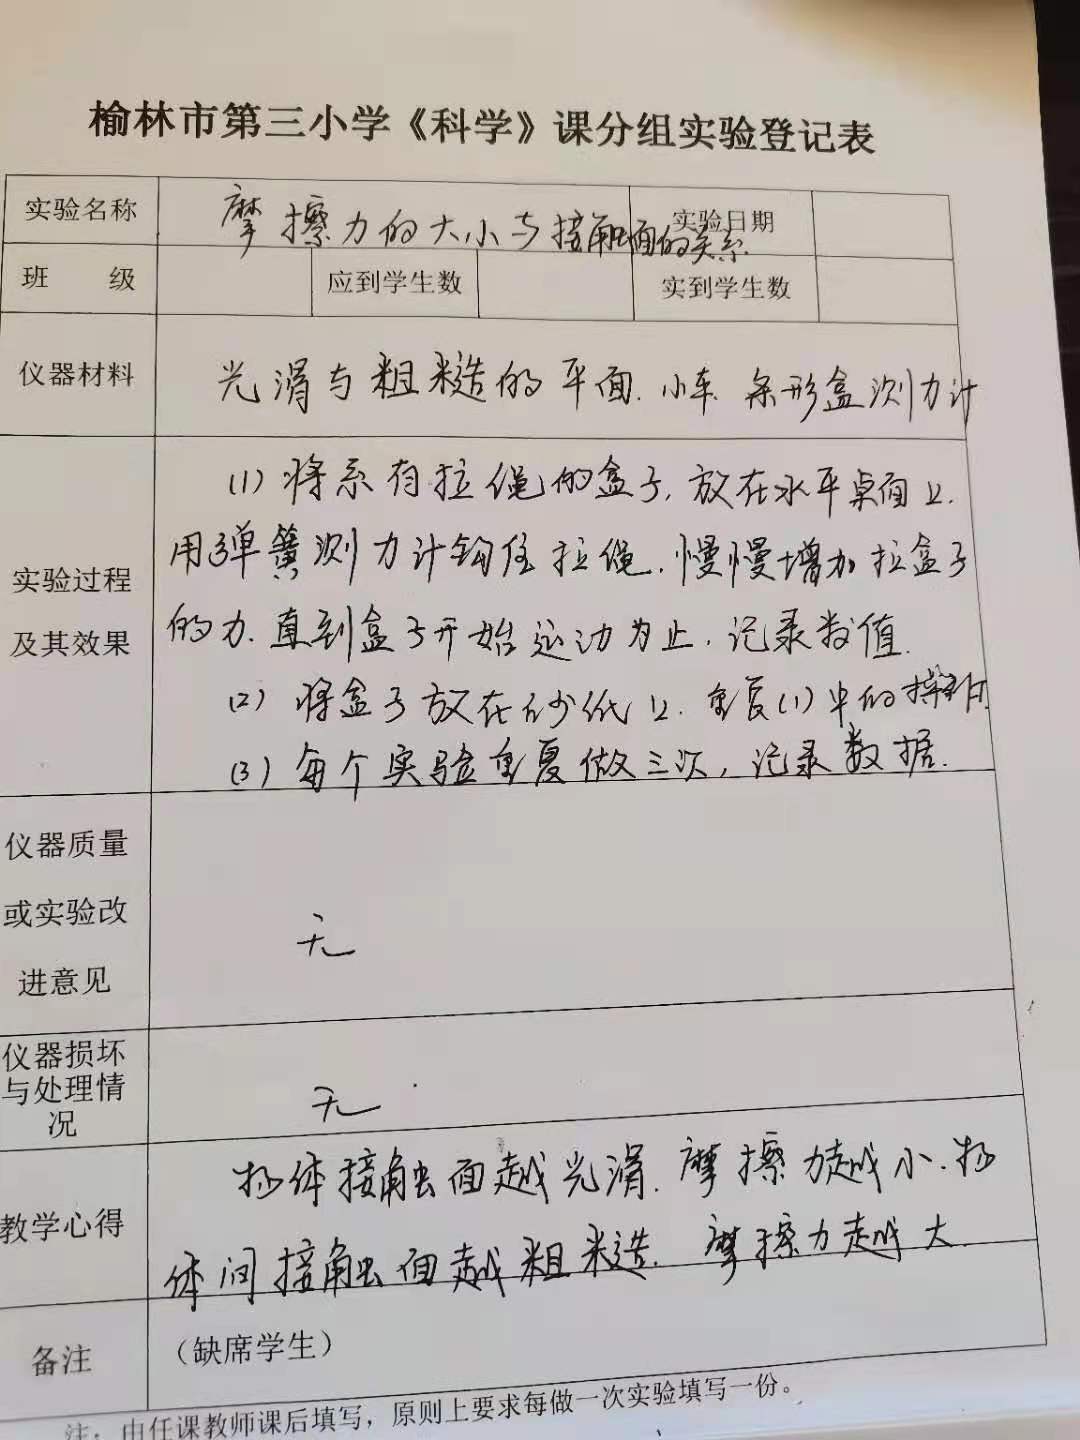 榆林市第三小学《科学》课分组实验登记表
实验名称 摩擦力的大小与接触面的关系 实验日期
班 级 应到学生数 实到学生数
仪器材料 光滑与粗糙的平面.小车.条形盒测力计
(1)将系有拉绳的盒子,放在水平桌面上.
用弹簧测力计钩住拉绳.慢慢增加拉盒子
实验过程
的力.直到盒子开始运动为止,记录数值.
及其效果
(2)将盒子放在砂纸上.重复(1)中的
(3)每个实验重复做三次,记录数据.
仪器质量
或实验改
无
进意见
仪器损坏
与处理情
况
无
物体接触面越光滑.摩擦力越小.物
教学心得
体间接触面越粗糙.摩擦力越大.
备注 (缺席学生)
注:由任课教师课后填写,原则上要求每做一次实验填写一份。